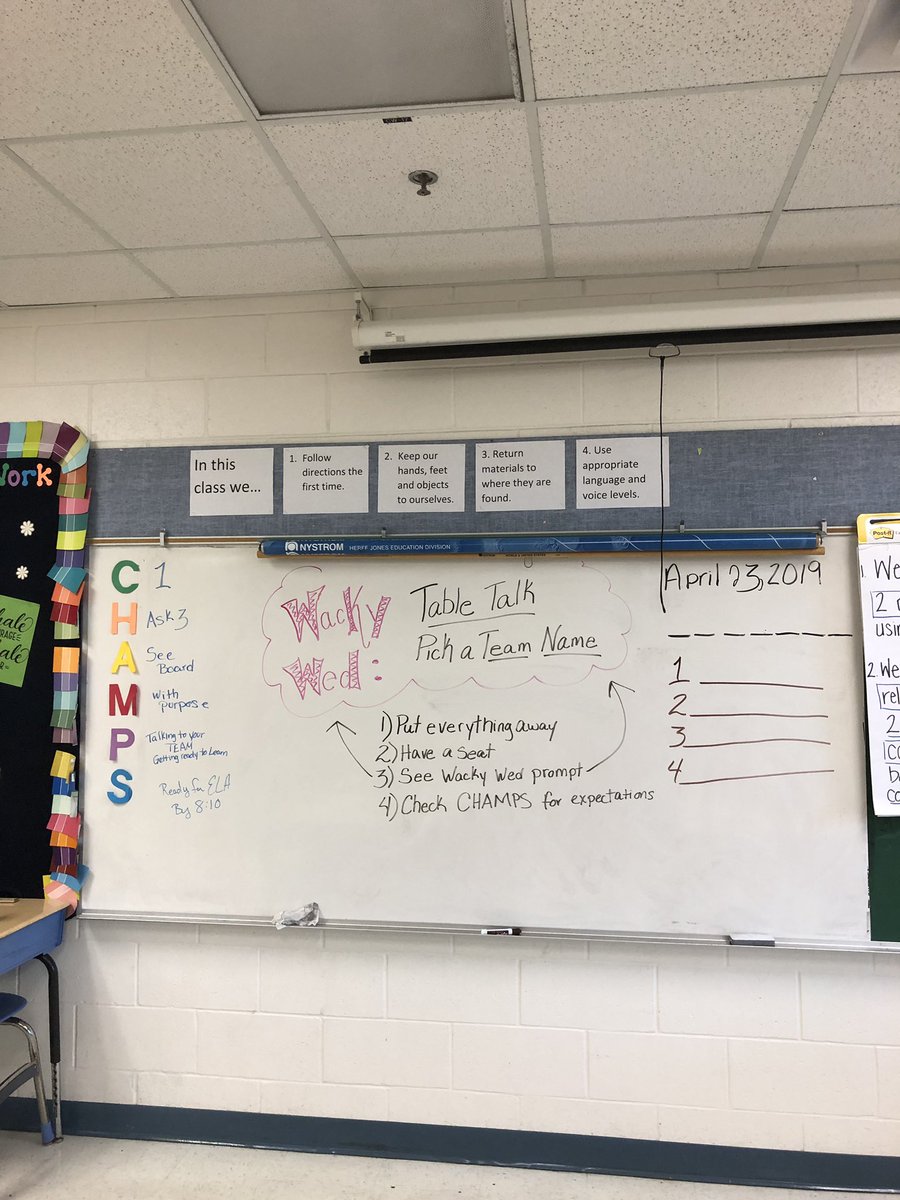 In this
class we...
1. Follow
directions the
first time.
2. Keep our
hands, feet
and objects
to ourselves.
3. Return
materials to
where they are
found.
4. Use
appropriate
language and
voice levels.
Work
NYSTROM HERFF JONES EDUCATION DIVISION
C 1
H Ask 3
A See
Board
M With
purpose
P Talking to your
TEAM
Getting ready to Learn
S Ready for ELA
By 8:10
Wacky
Wed:
Table Talk
Pick a Team Name
1) Put everything away
2) Have a seat
3) See Wacky Wed prompt
4) Check CHAMPS for expectations
April 23, 2019
1
2
3
4
Post-it
1. We
2
usin
2. We
rel
2